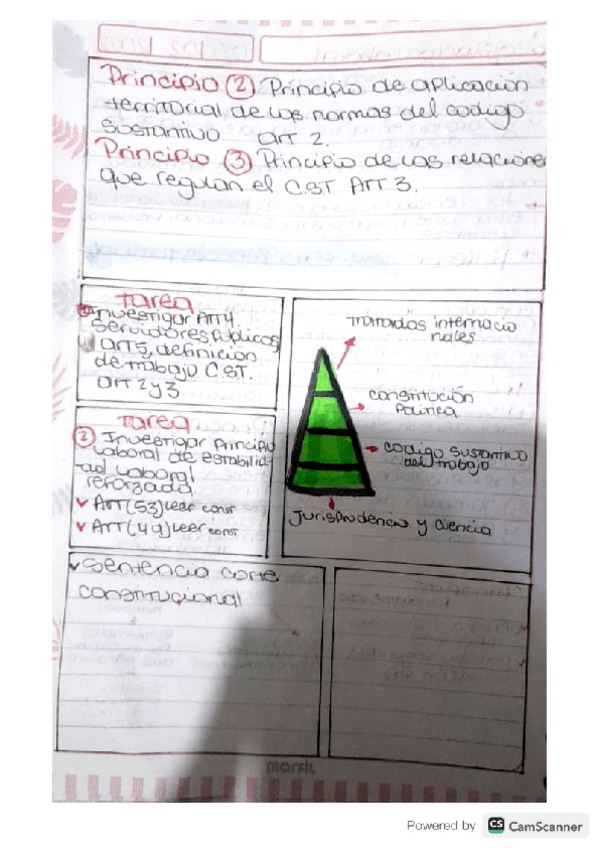 Principio (2) Principio de aplicación
territorial de las normas del codigo
Sustantivo art 2.
Principio (3) Principio de las relaciones
que regulan el C.S.T Art 3.
tarea
Investigar Art 4.
Servidores Públicos
art 5, definición
de trabajo C.S.T.
art 2 y 3
tarea
(2) Investigar Principio
laboral de estabilid-
ad laboral
reforzada.
Art (53) leer const
Art (49) leer const
Tratados internacio
nales
constitución
Politica
codigo sustantivo
del trabajo
Jurisprudencia y ciencia
Sentencia corte
constitucional
marsil
Powered by CS CamScanner